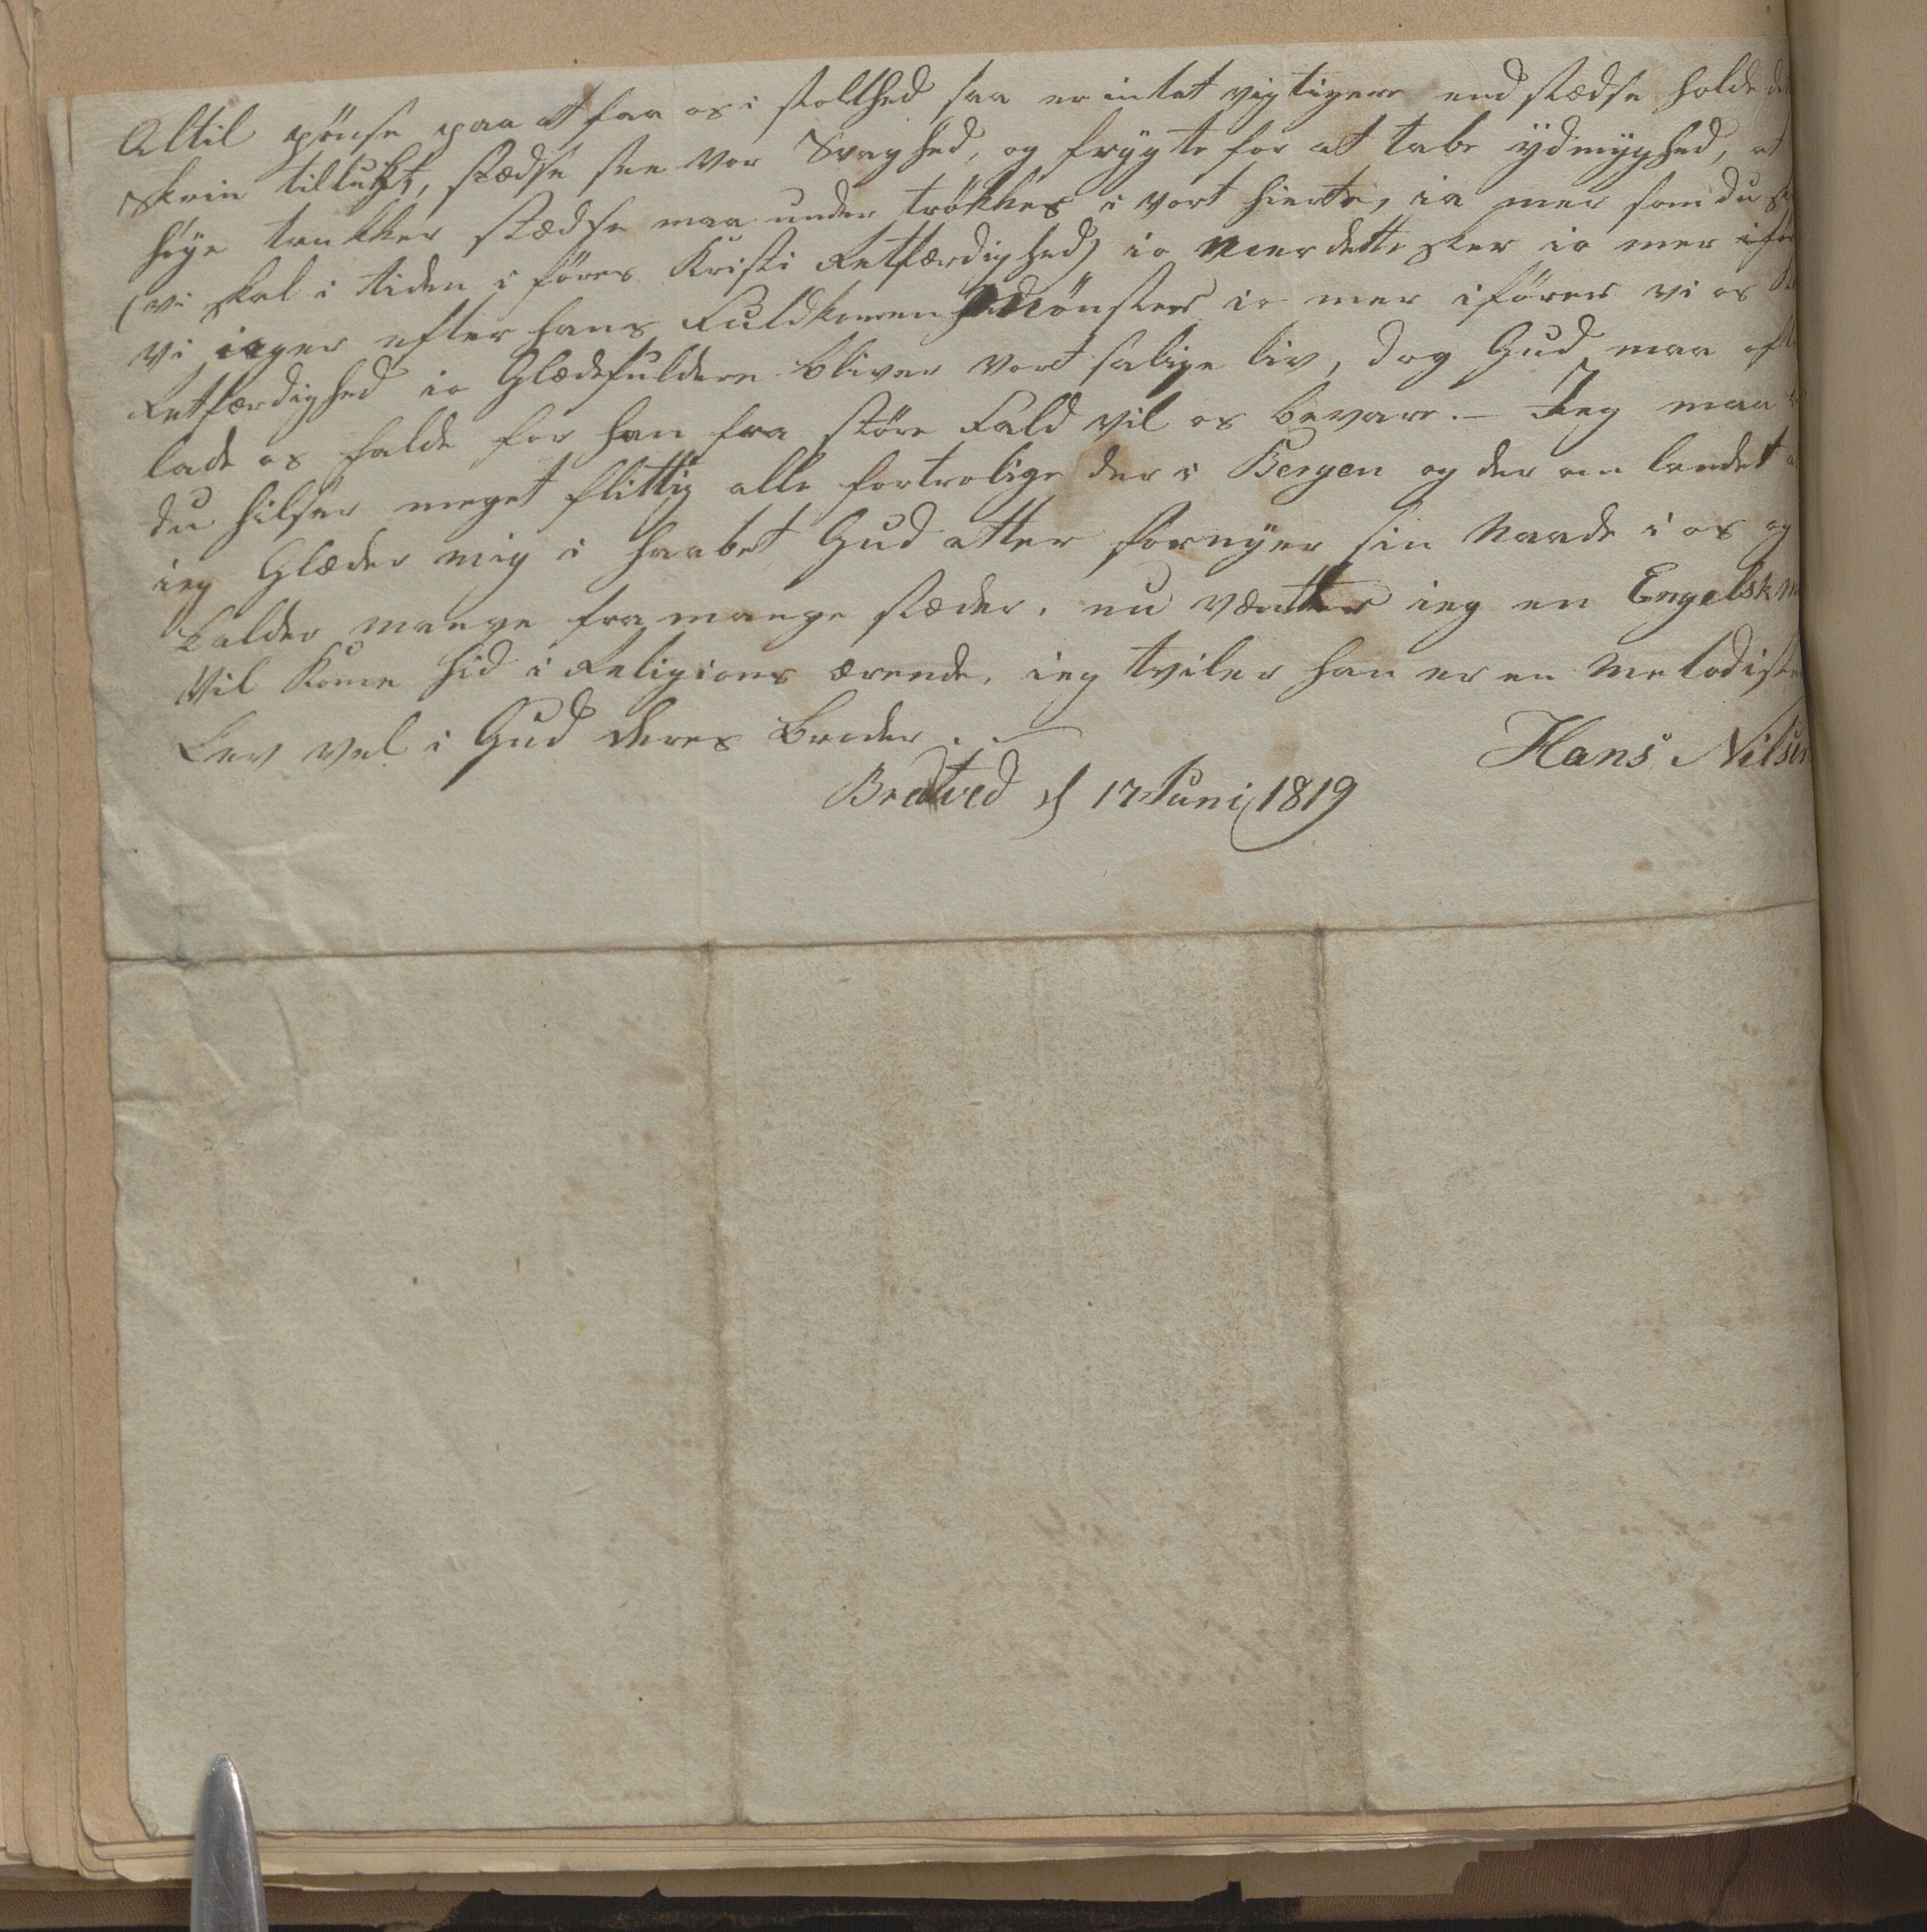 Altil pönse paa at faa os i stolthed saa er intet vigtigere end stædse holde de
skrin tillukt, stædse see vor Svaghed, og frygte for at tabe ÿdmyghed, at
höye tankker stædse maa under trökkes i vort hierte, ia mer som du
(vi skal i tiden i föres Kristi Retfærdighed) io Mer dette sker io mer ifö
vi iager efter hans Fuldkomen Mönster io mer iförer vi os
Retfærdighed io Glædefuldere bliver vort salige liv, dog Gud maa oft
lade os falde för han fra störe Fald vil os bevare. - Jeg maa
du hilser meget flittig alle fortrolige der i Bergen og der om landet
ieg Glæder mig i haabet Gud atter fornyer sin Naade i os og
kalder mange fra mange stæder. nu vænter ieg en Engelsk m
Vil kome hid i Religions ærende, ieg tviler han er en Metodist
Lev vel i Gud deres broder . -
Hans Nilsen
Bredtved d 17 Juni 1819